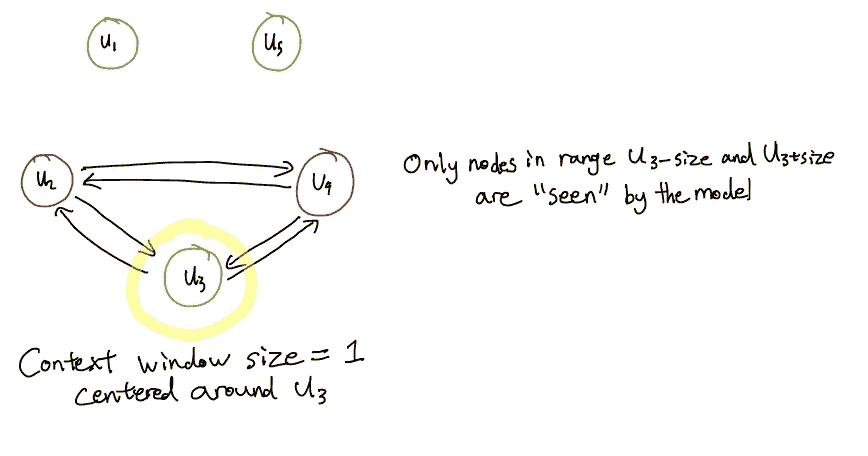 u₁
u₅
u₂
u₄
u₃
Only nodes in range u₃-size and u₃+size
are "seen" by the model
Context window size = 1
centered around u₃